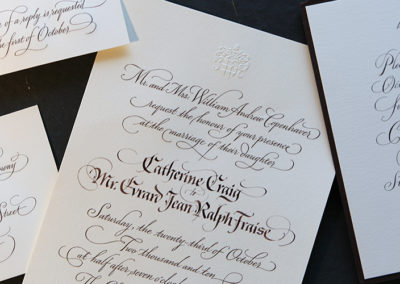 of a reply is requested
the first of October
Mr. and Mrs. William Andrew Copenhaver
request the honour of your presence
at the marriage of their daughter
Catherine Craig
to
Mr. Evrard Jean Ralph Fraise
Saturday, the twenty third of October
Two thousand and ten
at half after seven o'clock
Street